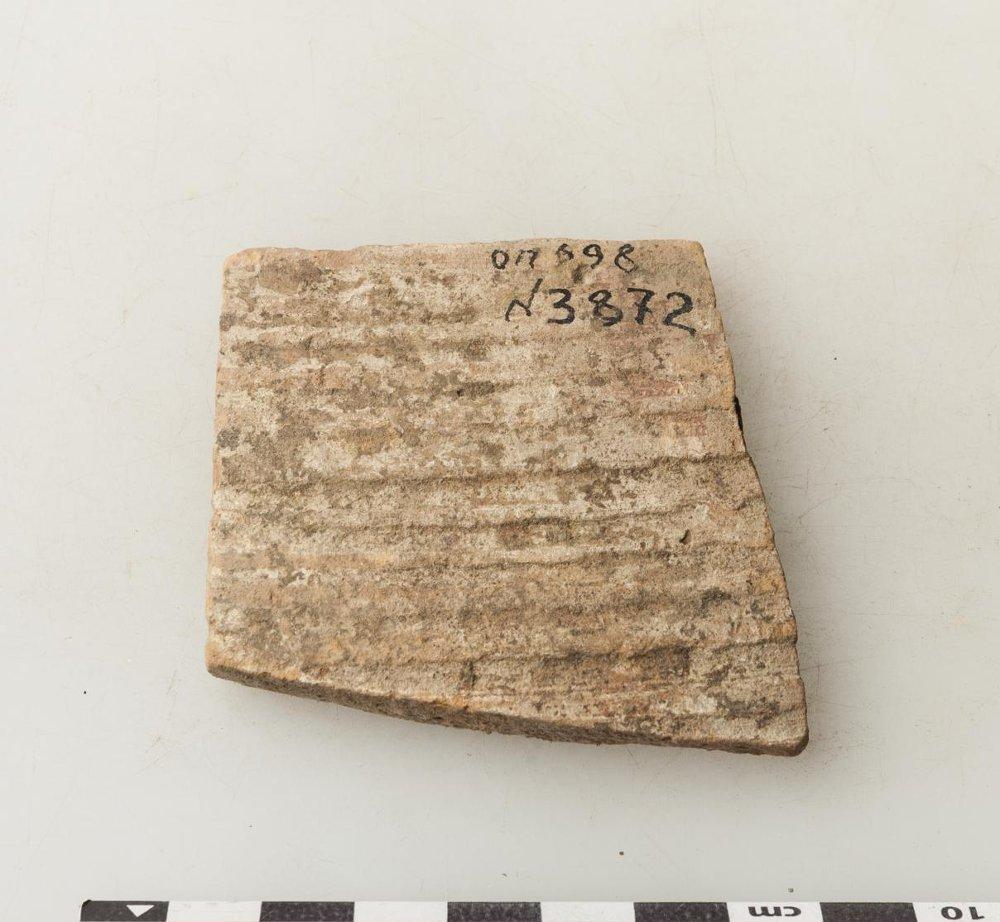 оп 698
N3872
cm
10